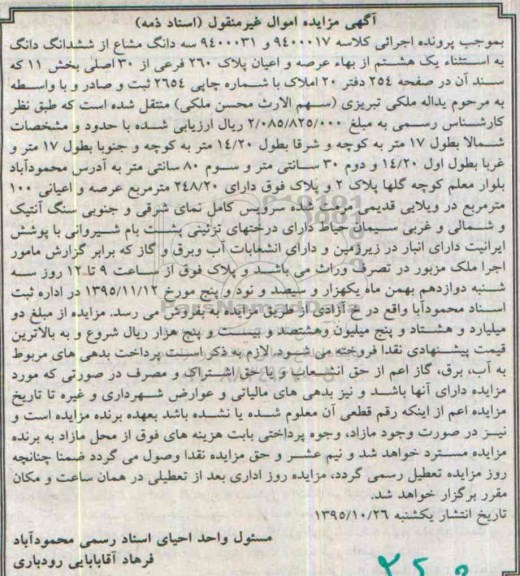 آگهی مزایده اموال غیرمنقول (اسناد ذمه)
بموجب پرونده اجرائی کلاسه ۹۴۰۰۰۱۷ و ۹۴۰۰۰۳۱ سه دانگ مشاع از ششدانگ دانگ
به استثناء یک هشتم از بهاء عرصه و اعیان پلاک ۲۶۰ فرعی از ۳۰ اصلی بخش ۱۱ که
سند آن در صفحه ۲۵۴ دفتر ۲۰ املاک با شماره چاپی ۲۶۵۴ ثبت و صادر و با واسطه
به مرحوم یداله ملکی تبریزی (سهم الارث محسن ملکی) منتقل شده است که طبق نظر
کارشناس رسمی به مبلغ ۲/۰۸۵/۸۲۵/۰۰۰ ریال ارزیابی شده با حدود و مشخصات
شمالا بطول ۱۷ متر به کوچه و شرقا بطول ۱۴/۲۰ متر به کوچه و جنوبا بطول ۱۷ متر و
غربا بطول اول ۱۴/۲۰ و دوم ۳۰ سانتی متر و سوم ۸۰ سانتی متر به آدرس محمودآباد
بلوار معلم کوچه گلها پلاک ۲ و پلاک فوق دارای ۲۴۸/۲۰ مترمربع عرصه و اعیانی ۱۰۰
مترمربع در ویلایی قدیمی سفید و سرویس کامل نمای شرقی و جنوبی سنگ آنتیک
و شمالی و غربی سیمان حیاط دارای درختهای تزئینی پشت بام شیروانی با پوشش
ایرانیت دارای انبار در زیرزمین و دارای انشعابات آب وبرق و گاز که برابر گزارش مامور
اجرا ملک مزبور در تصرف وراث می باشد و پلاک فوق از ساعت ۹ تا ۱۲ روز سه
شنبه دوازدهم بهمن ماه یکهزار و سیصد و نود و پنج مورخ ۱۳۹۵/۱۱/۱۲ در اداره ثبت
اسناد محمودآبا واقع در خ آزادی از طریق مزایده به فروش می رسد. مزایده از مبلغ دو
میلیارد و هشتاد و پنج میلیون وهشتصد و بیست و پنج هزار ریال شروع و به بالاترین
قیمت پیشنهادی نقدا فروخته می شود. لازم به ذکر است پرداخت بدهی های مربوط
به آب، برق، گاز اعم از حق انشعاب و یا حق اشتراک و مصرف در صورتی که مورد
مزایده دارای آنها باشد و نیز بدهی های مالیاتی و عوارض شهرداری و غیره تا تاریخ
مزایده اعم از اینکه رقم قطعی آن معلوم شده یا نشده باشد بعهده برنده مزایده است و
نیز در صورت وجود مازاد، وجوه پرداختی بابت هزینه های فوق از محل مازاد به برنده
مزایده مسترد خواهد شد و نیم عشر و حق مزایده نقدا وصول می گردد ضمنا چنانچه
روز مزایده تعطیل رسمی گردد، مزایده روز اداری بعد از تعطیلی در همان ساعت و مکان
مقرر برگزار خواهد شد.
تاریخ انتشار یکشنبه ۱۳۹۵/۱۰/۲۶
مسئول واحد احیای اسناد رسمی محمودآباد
فرهاد آقابابایی رودباری